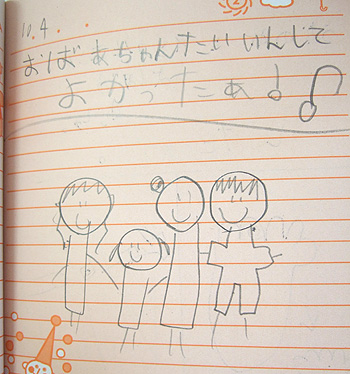 10.4.
おばあちゃんたいいんして
よかったぁ!